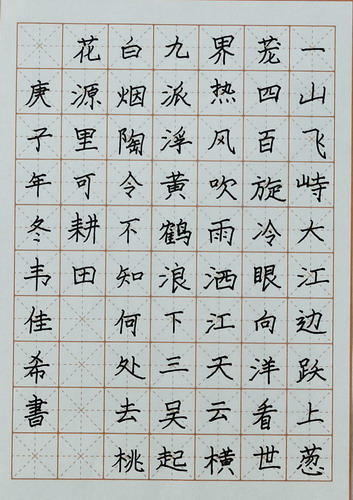 一山飞峙大江边跃上葱
茏四百旋冷眼向洋看世
界热风吹雨洒江天云横
九派浮黄鹤浪下三吴起
白烟陶令不知何处去桃
花源里可耕田
庚子年冬韦佳希書